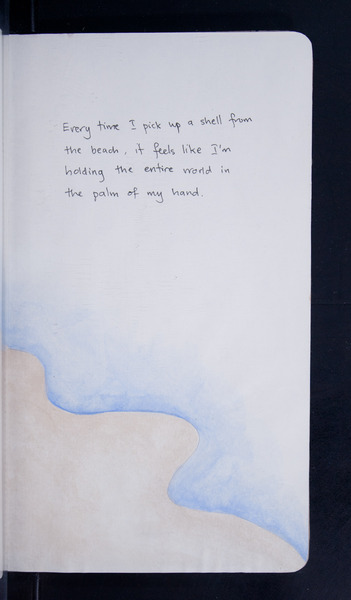 Every time I pick up a shell from
the beach, it feels like I'm
holding the entire world in
the palm of my hand.